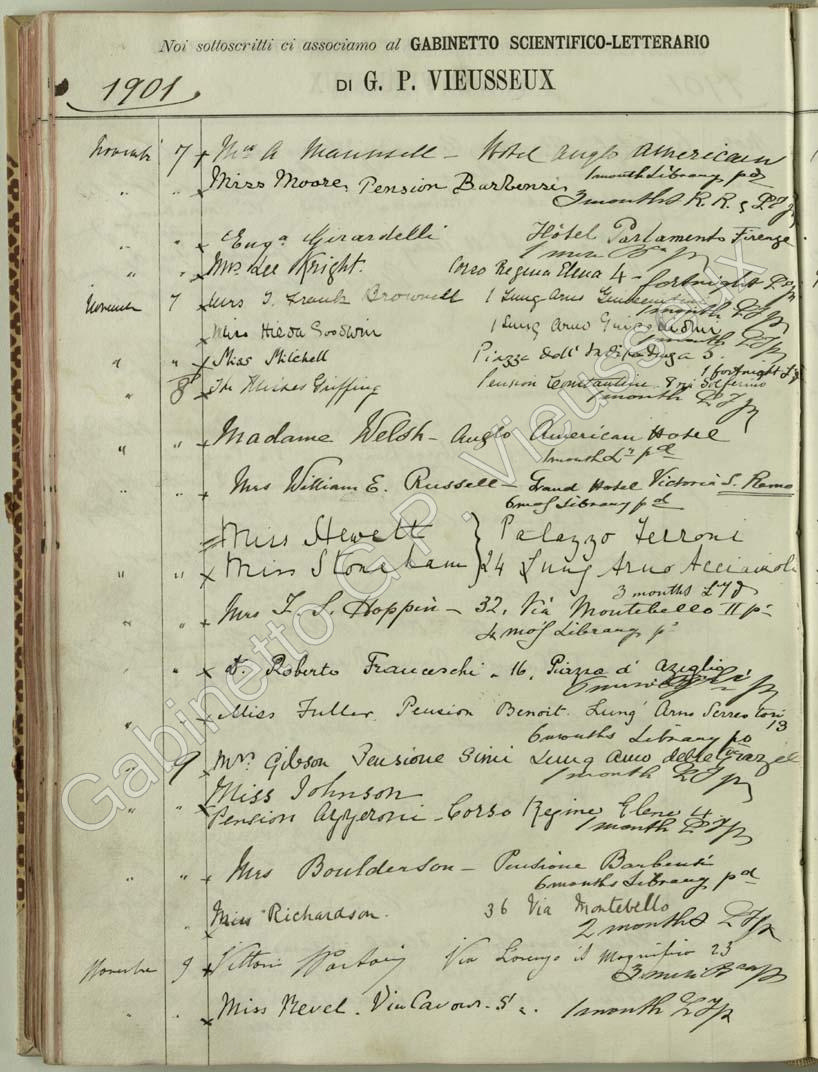 Noi sottoscritti ci associamo al GABINETTO SCIENTIFICO-LETTERARIO
1901
DI G. P. VIEUSSEUX
Novembre 7 Mrs A Maunsell - Hotel Anglo American
1 month Library pd
" " Miss Moore, Pension Barbensi
3 months R. R. &
" " Eug. Girardelli Hôtel Parlamento Firenze.
" " Mrs Lee Knight. Corso Regina Elena 4 -
fortnight
Novembre 7 Mrs J. Frank Brownell 1 Lung Arno Guicciardini
1 month
Miss Hilda Goodwin 1 Lung Arno Guicciardini
1 month
" " Miss Mitchell Piazza dell' Indipendenza 5.
1 fortnight
8 The Misses Griffing Pension Constantine. 8 via Solferino
1 month
" " Madame Welsh - Anglo American Hotel
1 month pd
" " Mrs William E. Russell - Grand Hotel Victoria S. Remo
6 mos Library pd
Miss Hewett } Palazzo Ferroni
" " Miss Stoneham } 24 Lung Arno Acciaiuoli
3 months
" " Mrs F. S. Hoppin - 32, Via Montebello II p
4 mos Library pd
" " D. Roberto Franceschi - 16, Piazza d'Azeglio
" Miss Fuller. Pension Benoit. Lung' Arno Serristori
13
6 months Library pd
" 9 Mrs. Gibson Pensione Simi Lung Arno delle Grazie
1 month
" " Miss Johnson
Pension Azzeroni - Corso Regina Elena 4
1 month
" " Mrs Boulderson - Pensione Barbensi
6 months Library pd
" " Miss Richardson. 36 Via Montebello
2 months
Novembre 9 Via Lorenzo il Magnifico 23
3 mesi
" " Miss Revel. Via Cavour - 5 1 month
Gabinetto G.P. Vieusseux